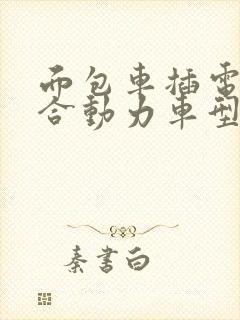 而包車插電
合動力車型
秦書白